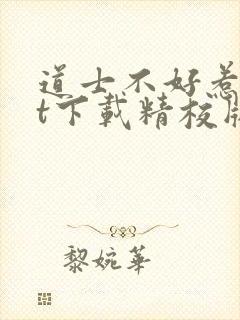 道士不好惹
t下载精校版
黎婉华